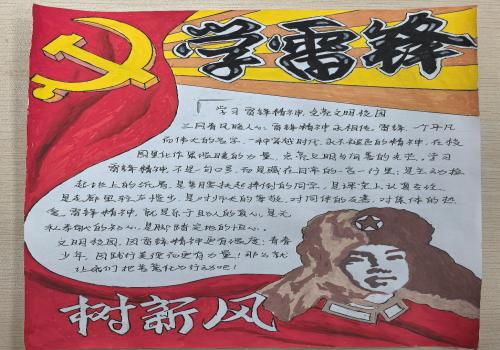 学雷锋
学习雷锋精神,点亮文明校园
三月春风暖人心,雷锋精神永相传。雷锋,一个平凡
而伟大的名字,一种穿越时代、永不褪色的精神,在校
园里化作最温暖的力量,点亮文明与向善的光芒。学习
雷锋精神,不是一句口号,而是藏在日常的一言一行里:是主动捡
起地上的纸屑,是看见同学摔倒时
是走廊里轻声慢步,是对师长的尊敬,对同伴的友善,对集体的热
爱。雷锋精神,就是乐于助人的真心,是无
私奉献的初心,是脚踏实地的恒心。
文明校园,因雷锋精神更有温度;青春
少年,因践行美德而更有力量!那么就
让我们把
树新风